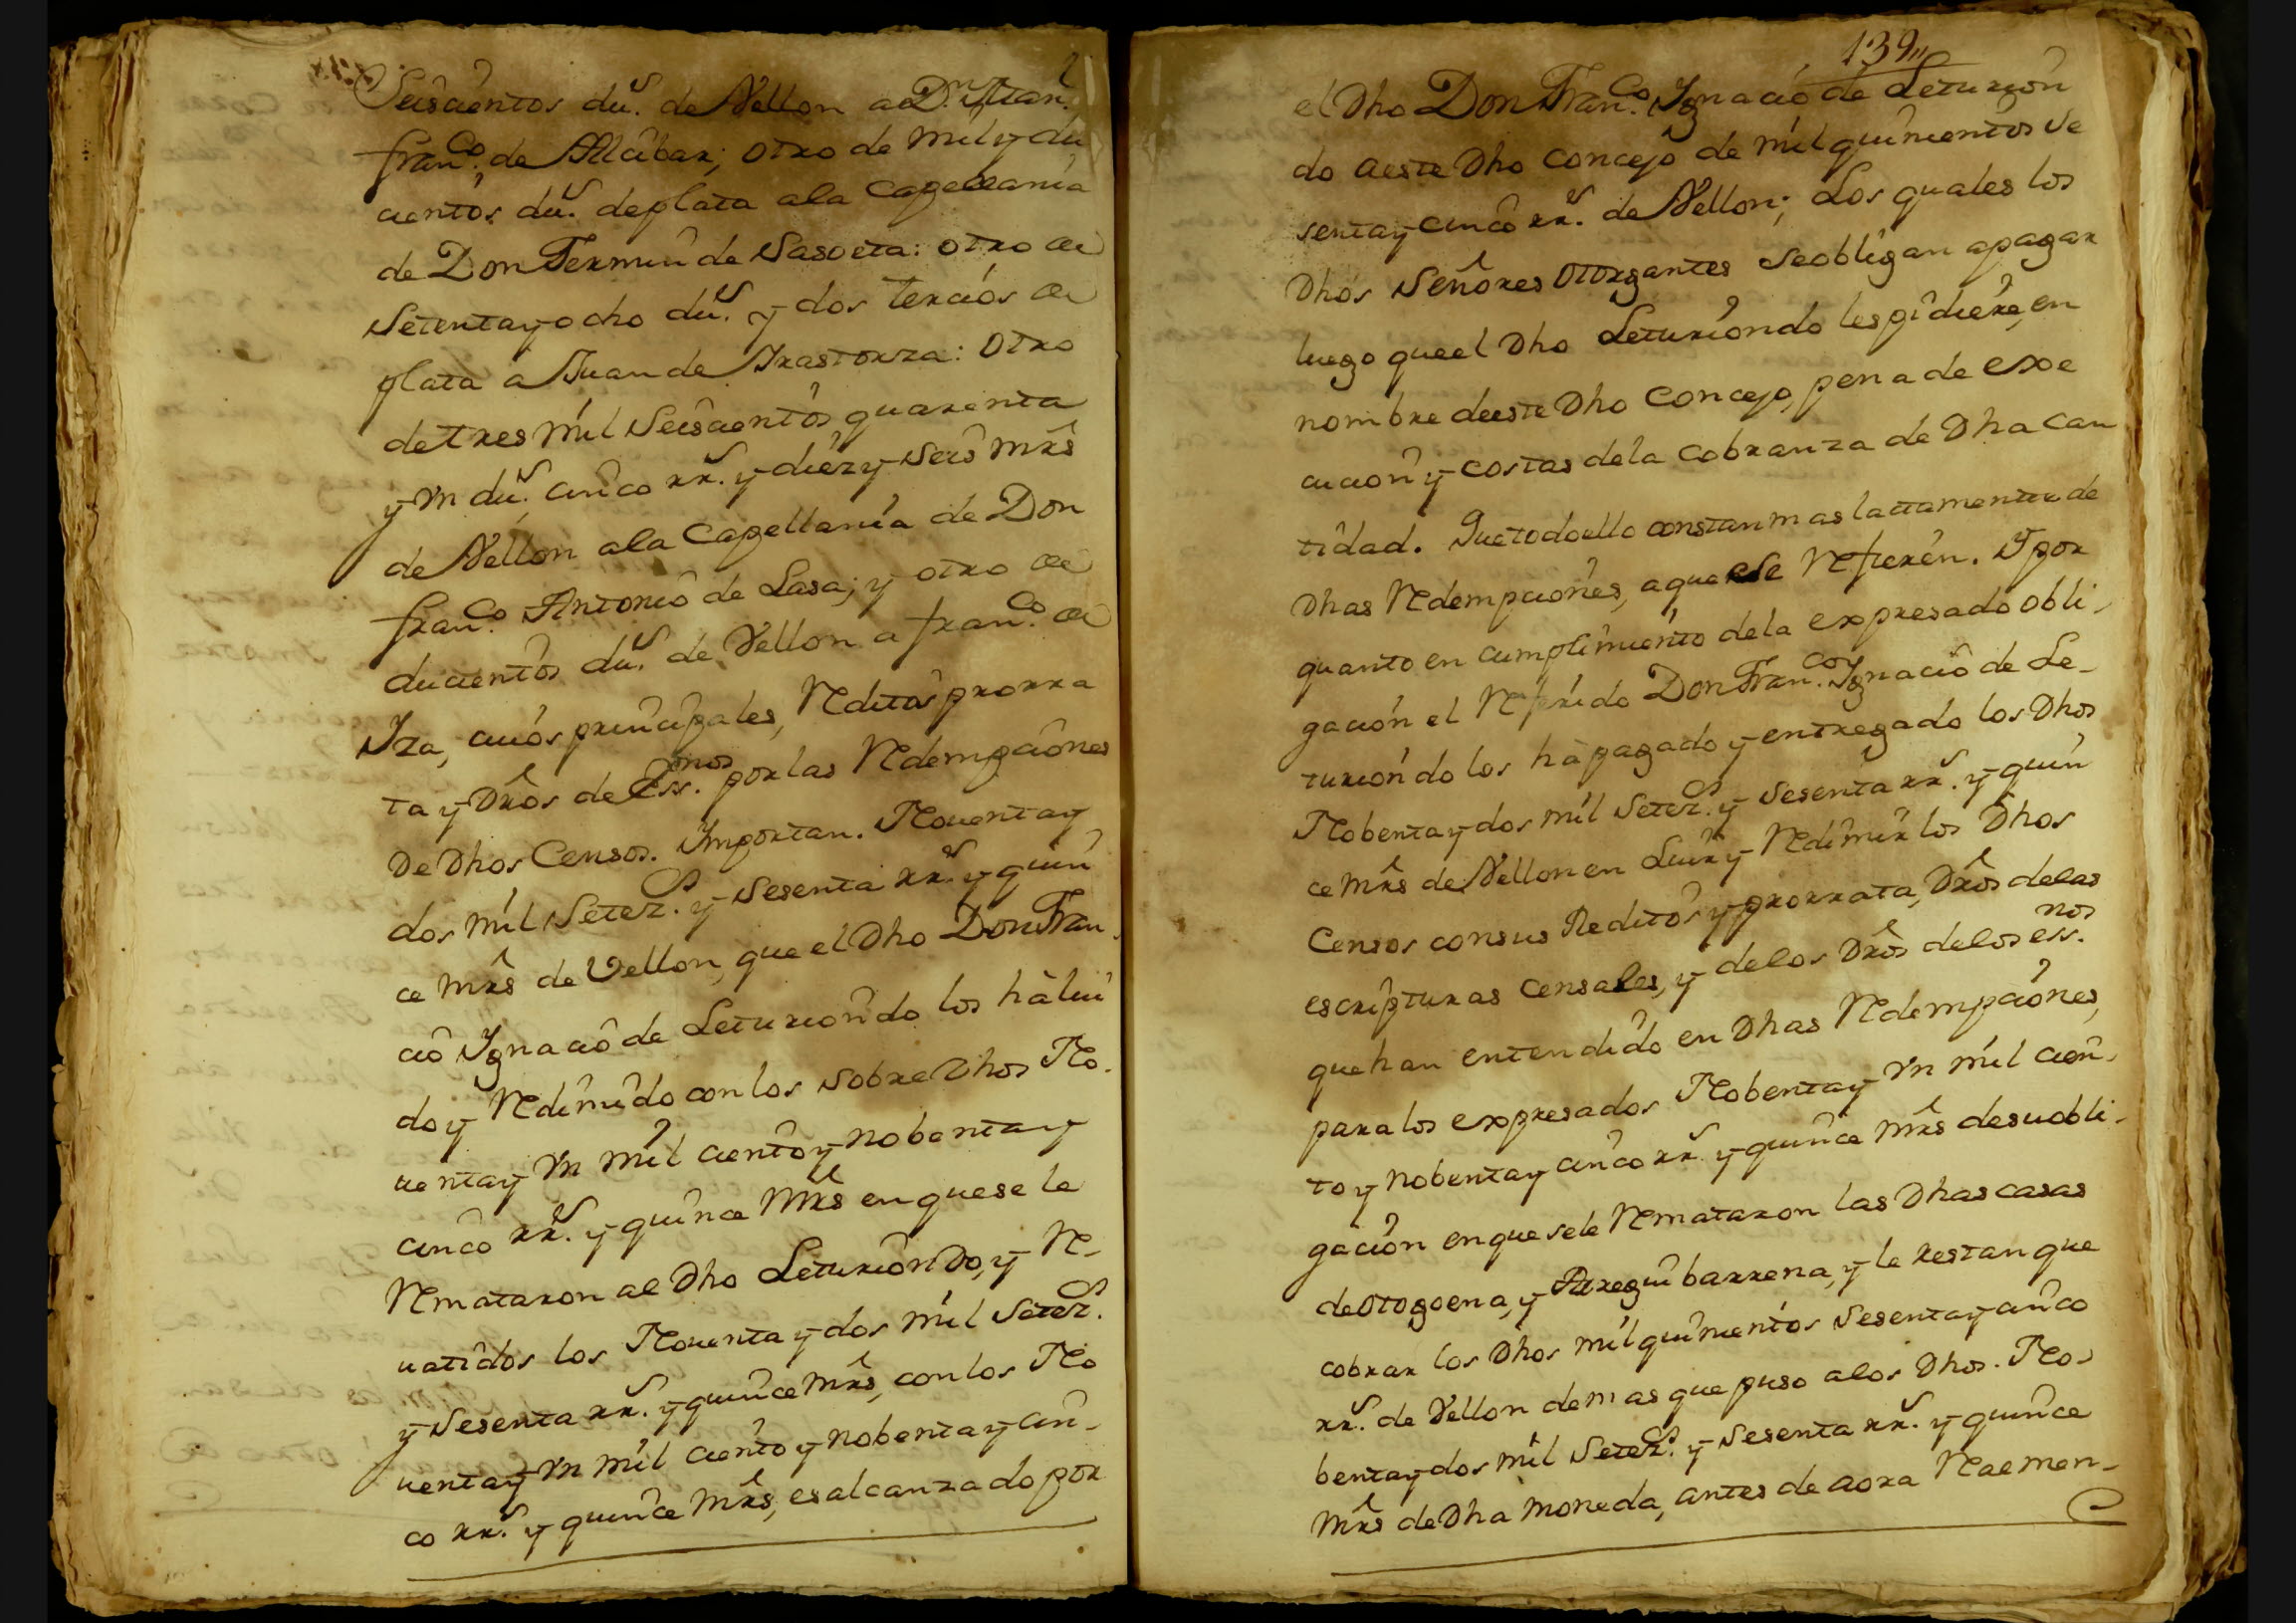 Seiscientos du.s de Vellon a D.n Juan
fran.co de Alcibar; otro de mil y du
cientos du.s de plata ala Capellania
de Don Fermin de Sasoeta: otro de
Setenta y ocho du.s y dos tercios de
plata a Juan de Irastorza: Otro
de tres mil Seiscientos quarenta
y Vn du.s, cinco rr.s y diez y Seis mrs
de Vellon ala Capellania de Don
fran.co Antonio de Lasa; y otro de
ducientos du.s de Vellon a fran.co de
Yza, cuios principales, Reditos prorra
ta y Dros de Ess.nos por las Redempciones
De Dhos Censos. Importan. Noventa y
dos mil Setez.s y Sesenta rr.s y quin
ce mrs de Vellon, que el Dho Don Fran
cio Ygnacio de Leturiondo los hà lui
do y Redimido con los Sobre Dhos No
venta y Vn mil ciento y nobenta y
cinco rr.s y quince Mrs en que se le
Remataron al Dho Leturiondo, y Re
vatidos los Noventa y dos mil Setez.s
y Sesenta rr.s y quince mrs, con los No
venta y Vn mil ciento y nobenta y cin
co rr.s y quince Mrs, es alcanzado por
139
el Dho Don Fran.co Ygnacio de Leturion
do a este Dho Concejo de mil quinientos Se
senta y cinco rr.s de Vellon; Los quales los
Dhos Señores Otorgantes Se obligan a pagar
luego que el Dho Leturiondo les pidiere, en
nombre de este Dho Concejo, pena de exe
cucion y costas de la Cobranza de Dha Can
tidad. Que todo ello constan mas lattamente de
Dhas Redempciones, a que se Refieren. Y por
quanto en cumplimiento de la expresado obli
gacion el Referido Don Fran.co Ygnacio de Le
turiondo los hà pagado y entregado los Dhos
Nobenta y dos mil Setez.s y Sesenta rr.s y quin
ce Mrs de Vellon en Luir y Redimir los Dhos
Censos con sus Reditos y prorrata, Dros de las
escripturas Censales, y de los Dros de los ess.nos
que han entendido en Dhas Redempciones,
para los expresados Nobenta y Vn mil cien
to y Nobenta y cinco rr.s y quince Mrs de su obli
gacion en que se le Remataron las Dhas casas
de Otogoena, y Arreguibarrena, y le restan que
cobrar los Dhos mil quinientos Sesenta y cinco
rr.s de Vellon de mas que puso a los Dhos. No
benta y dos mil Setez.s y Sesenta rr.s y quince
Mrs de Dha moneda, antes de aora Raemen